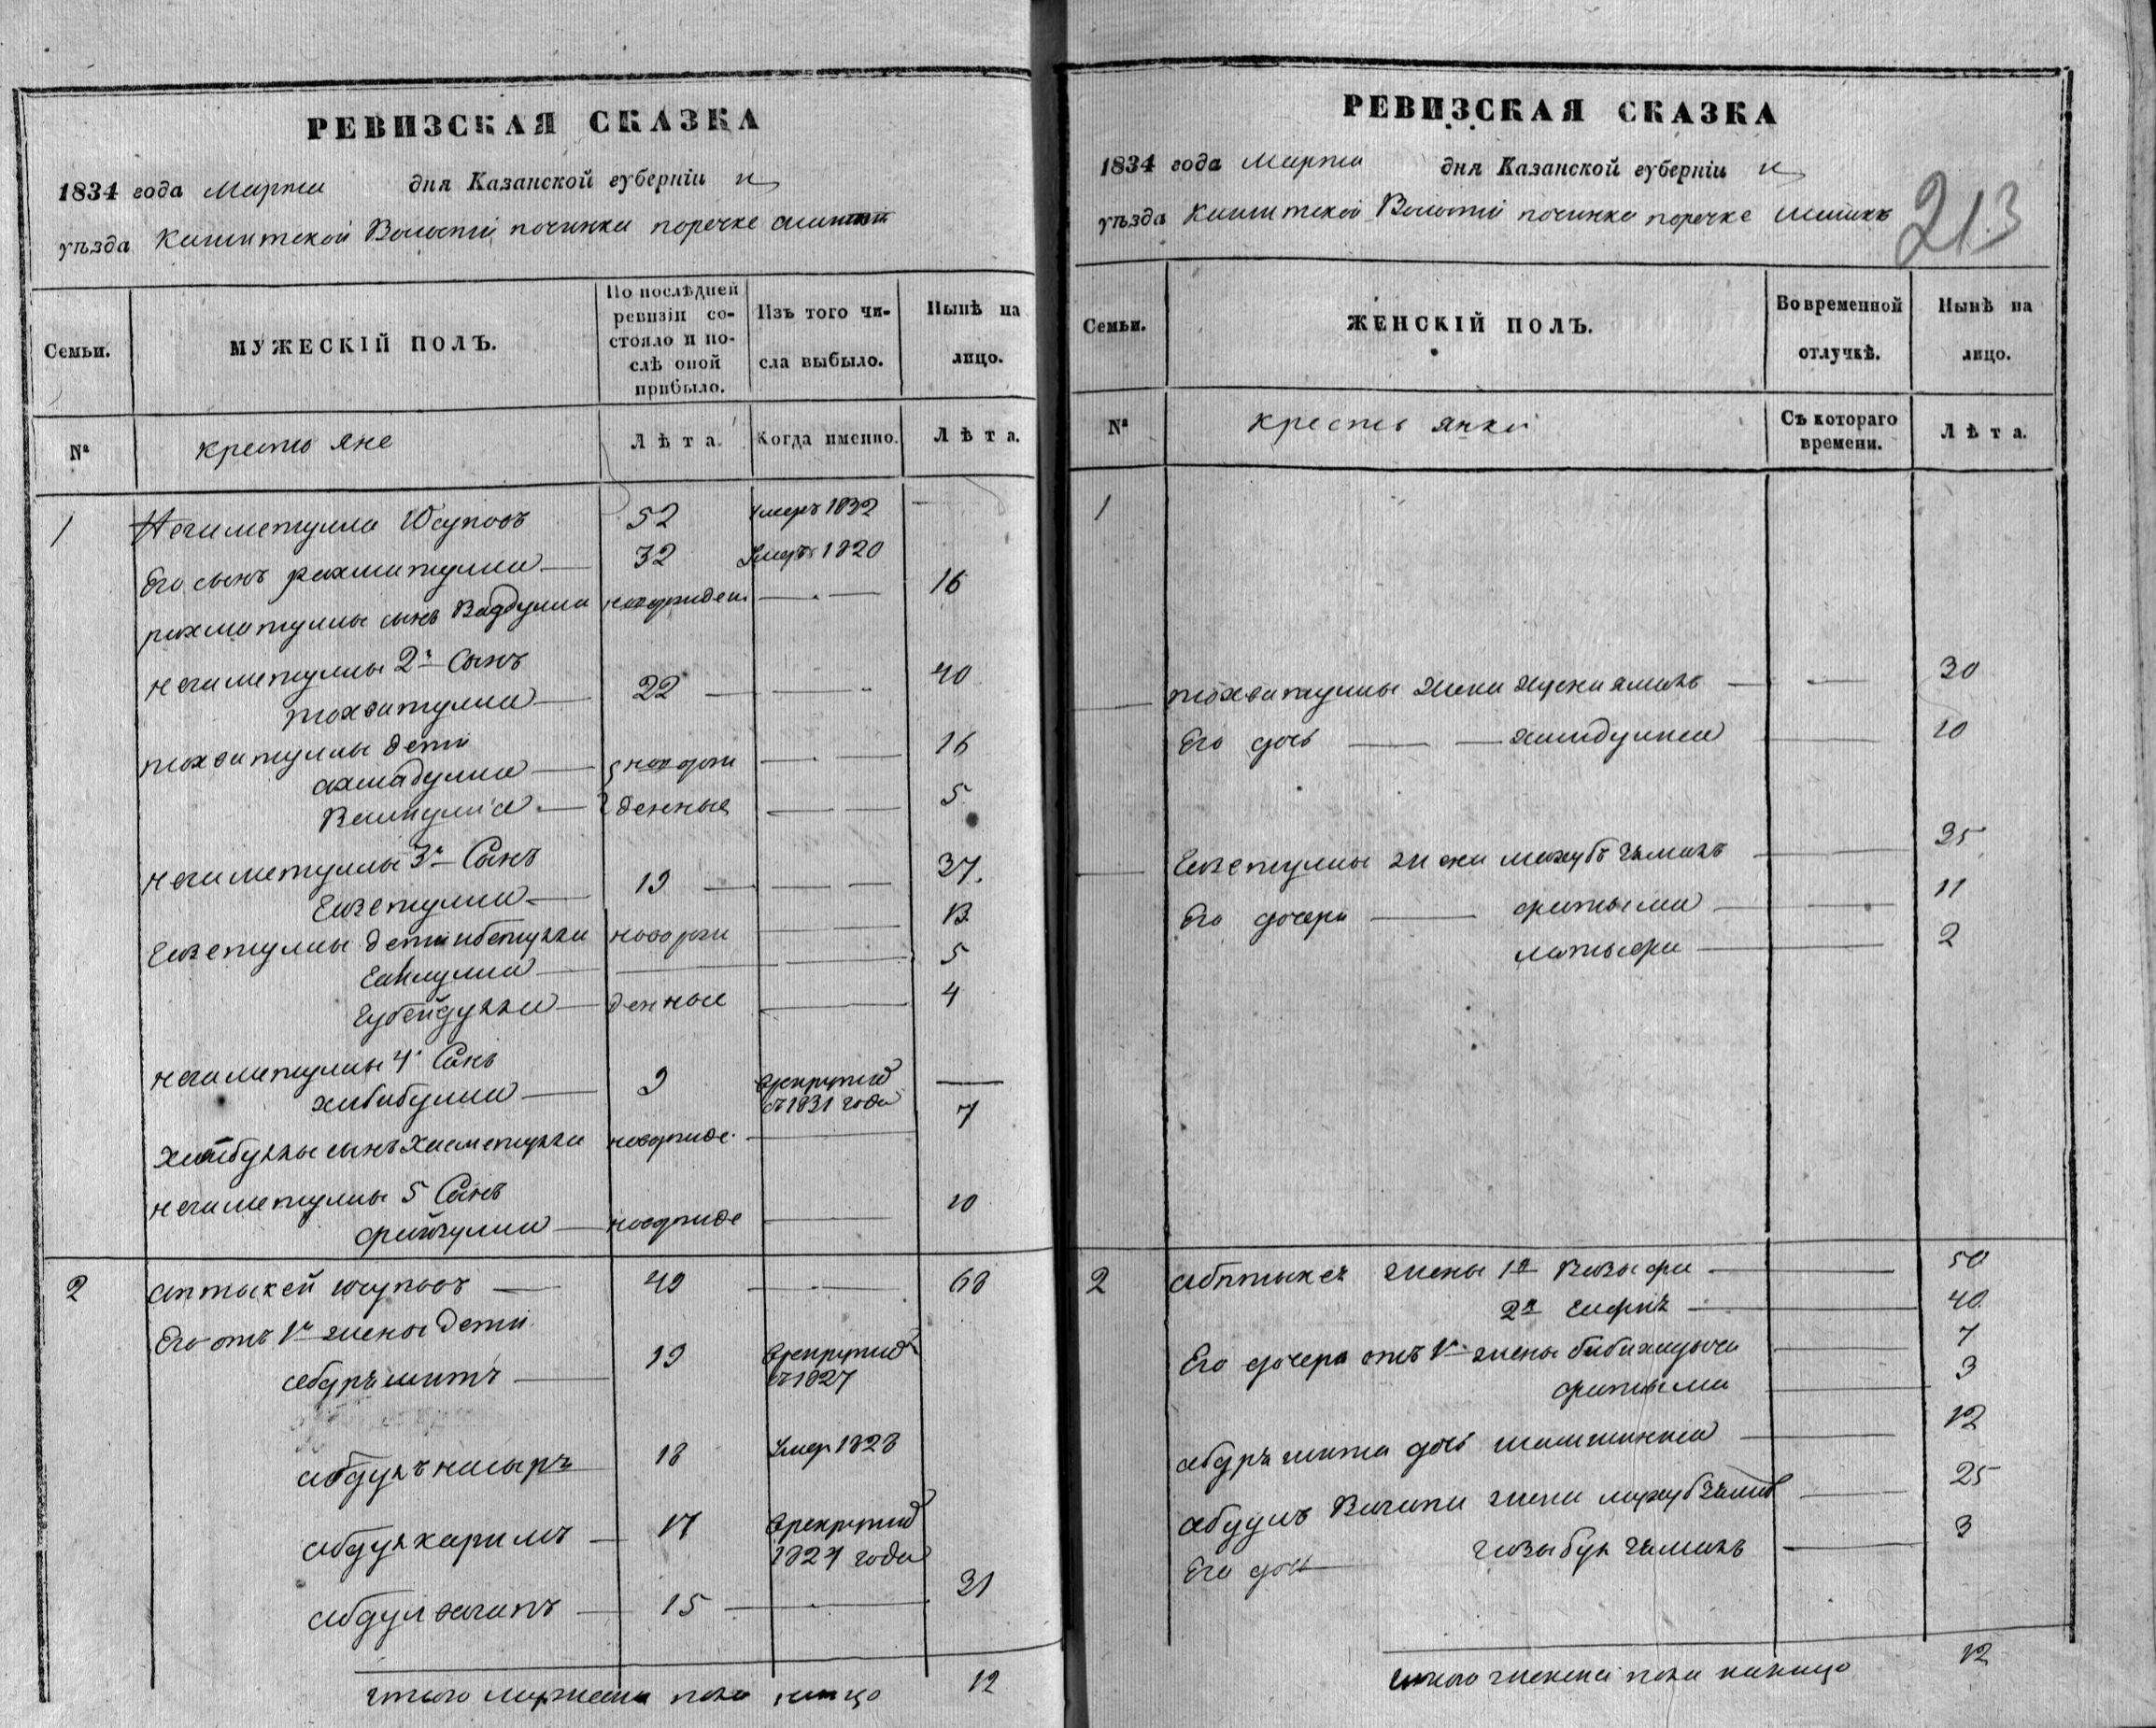 РЕВИЗСКАЯ СКАЗКА
1834 года Марта дня Казанской губерніи
уѣзда Волости починка поречке
Семьи.
МУЖЕСКІЙ ПОЛЪ.
По послѣдней ревизіи со-
стояло и по-
слѣ оной
прибыло.
Изъ того чи-
сла выбыло.
Нынѣ на
лицо.
№
крестьяне
Лѣта.
Когда именно.
Лѣта.
1
Негаметулла Юсуповъ 52 умеръ 1832
Его сынъ рахматулла 32 Умеръ 1820
рахматуллы сынъ новорожден 16
негаметуллы 2й Сынъ
тохватулла 22 40
тохватуллы дети
ахмадулла новорож 16
Валиулла денные 5
негаметуллы 3й Сынъ
Гизетулла 19 37.
Гизетуллы дети ибетулла новорож 13
5
Губейдулла денные 4
негаметуллы 4й Сынъ
хабибулла 9 врекруты
съ 1831 года
сынъ Хисметулла новорожде 7
негаметуллы 5 Сынъ
файзулла новорожде 10
2
аптыкей юсуповъ 49 68
Его отъ 1й жены дети
абдрашитъ 19 врекруты
въ 1827
абдулънасыръ 18 Умер 1828
абдулкаримъ 17 врекруты
1824 года
абдулвагапъ 15 31
итого мужеска пола налицо 12
РЕВИЗСКАЯ СКАЗКА
213
1834 года Марта дня Казанской губерніи
уѣзда Волости починка поречке
Семьи.
ЖЕНСКІЙ ПОЛЪ.
Во временной
отлучкѣ.
Нынѣ на
лицо.
№
крестьянки
Съ котораго
времени.
Лѣта.
1
тохватуллы жена 30
Его дочь 10
Гизетуллы жена махубъ Замалъ 35
Его дочери фатыма 11
латыфа 2
2
абптыкея жены 1я 50
2я 40
Его дочери отъ 1й жены 7
фатыма 3
абдрашита дочь 12
абдулъ Вагапа жена 25
Его дочь 3
итого женска пола налицо 12